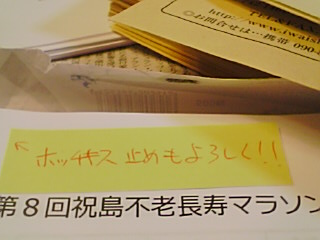 http://www.iwaish
◎お問合せは…携帯 090-
↖ホッチキス止めもよろしく!!
第8回祝島不老長寿マラソン